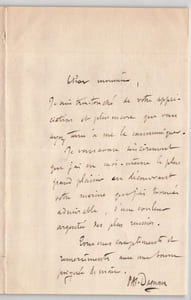 Cher monsieur,
Je suis très touché de votre appré-
ciation et plus encore que vous
ayez tenu à me la communiquer.
Je vous avoue sincèrement
que j'ai eu moi-même le plus
grand plaisir en découvrant
votre marine que j'ai trouvée
admirable, d'une couleur
argentée des plus
Tous mes compliments et
remerciements avec une bonne
poignée de main.